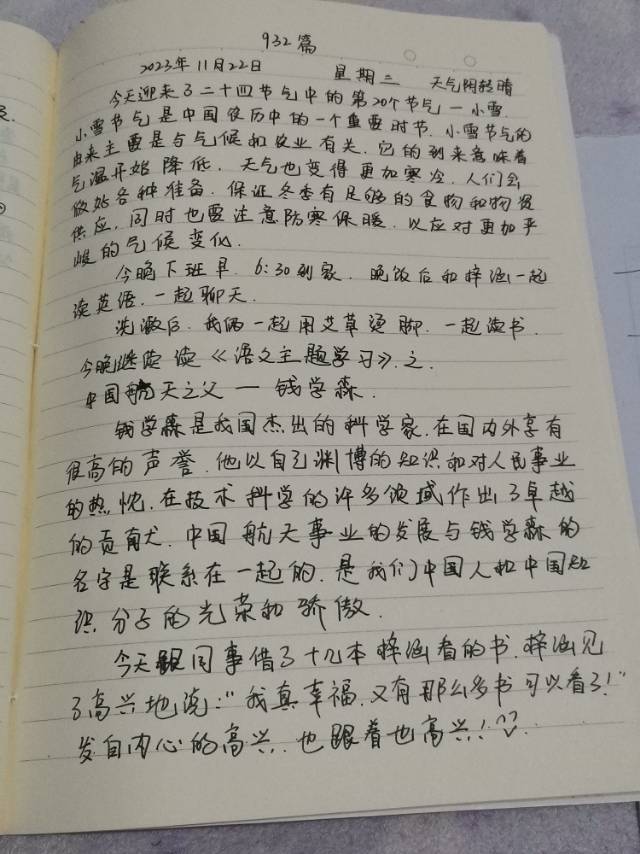 932篇
2023年11月22日 星期三 天气阴转晴
今天迎来了二十四节气中的第20个节气一小雪.
小雪节气是中国农历中的一个重要时节.小雪节气的
由来主要是与气候和农业有关.它的到来意味着
气温开始降低.天气也变得更加寒冷.人们会
做好各种准备.保证冬季有足够的食物和物资
供应,同时也要注意防寒保暖.以应对更加严
峻的气候变化.
今晚下班早.6:30到家.晚饭后和梓涵一起
读英语.一起聊天.
洗漱后.我俩一起用艾草烫脚.一起读书.
今晚继续读《语文主题学习》之.
中国航天之父一钱学森.
钱学森是我国杰出的科学家.在国内外享有
很高的声誉.他以自己渊博的知识和对人民事业
的热忱.在技术科学的许多领域作出了卓越
的贡献.中国航天事业的发展与钱学森的
名字是联系在一起的.是我们中国人和中国知
识分子的光荣和骄傲.
今天跟同事借了十几本梓涵看的书.梓涵见
了高兴地说:"我真幸福.又有那么多书可以看了!"
发自内心的高兴.也跟着也高兴!